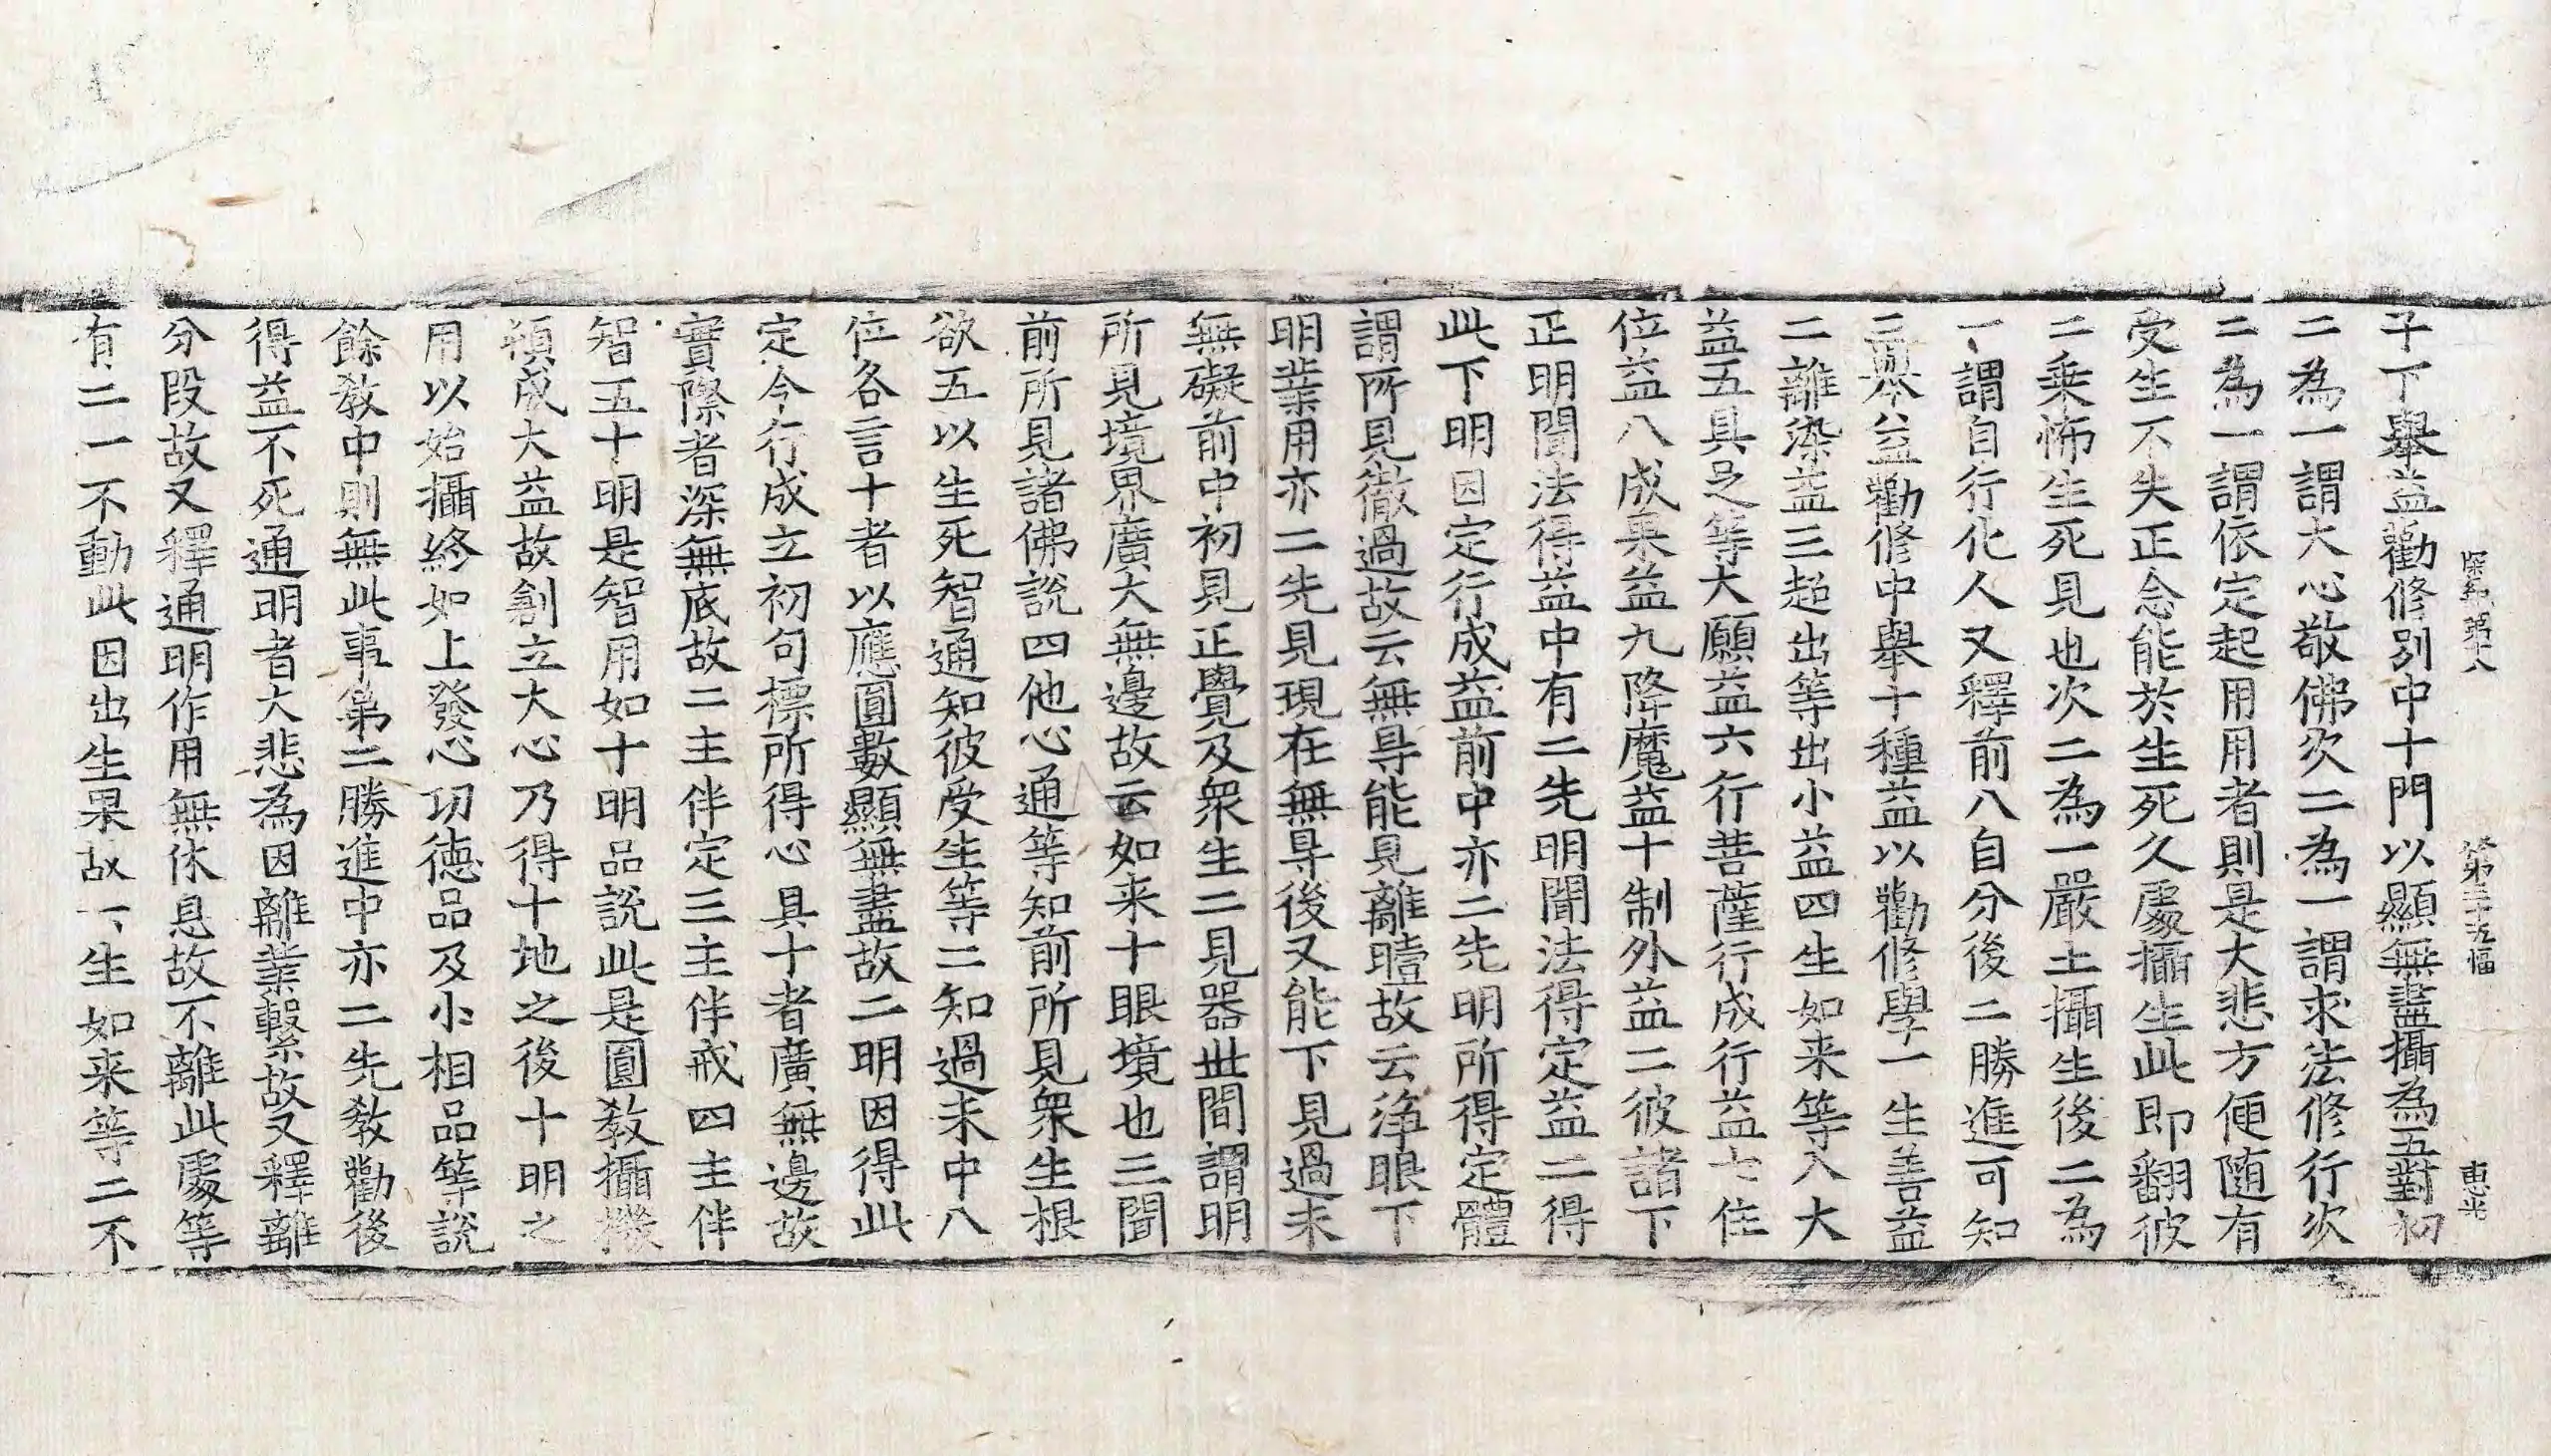 探玄第十八　第三十九幅　惠光
子下舉益勸修別中十門以顯無盡攝為五對初
二為一謂大心敬佛次二為一謂求法修行次
二為一謂依定起用用者則是大悲方便随有
受生不失正念能於生死久處攝生此即翻彼
二乗怖生死見也次二為一嚴土攝生後二為
一謂自行化人又釋前八自分後二勝進可知
三舉益勸修中舉十種益以勸修學一生善益
二離染益三超出等出小益四生如来等入大
益五具足等大願益六行菩薩行成行益七住
位益八成果益九降魔益十制外益二彼諸下
正明聞法得益中有二先明聞法得定益二得
此下明因定行成益前中亦二先明所得定體
謂所見徹過故云無㝵能見離曀故云淨眼下
明業用亦二先見現在無㝵後又能下見過未
無礙前中初見正覺及衆生二見器世間謂明
所見境界廣大無邊故云如来十眼境也三聞
前所見諸佛說四他心通等知前所見衆生根
欲五以生死智通知彼受生等二知過未中八
位各言十者以應圓數顯無盡故二明因得此
定今行成立初句標所得心具十者廣無邊故
實際者深無底故二主伴定三主伴戒四主伴
智五十明是智用如十明品說此是圓教攝機
頓成大益故創立大心乃得十地之後十明之
用以始攝終如上發心功徳品及小相品等說
餘教中則無此事第二勝進中亦二先教勸後
得益不死通明者大悲為因離業繫故又釋離
分段故又釋通明作用無休息故不離此處等
有二一不動此因出生果故一生如来等二不